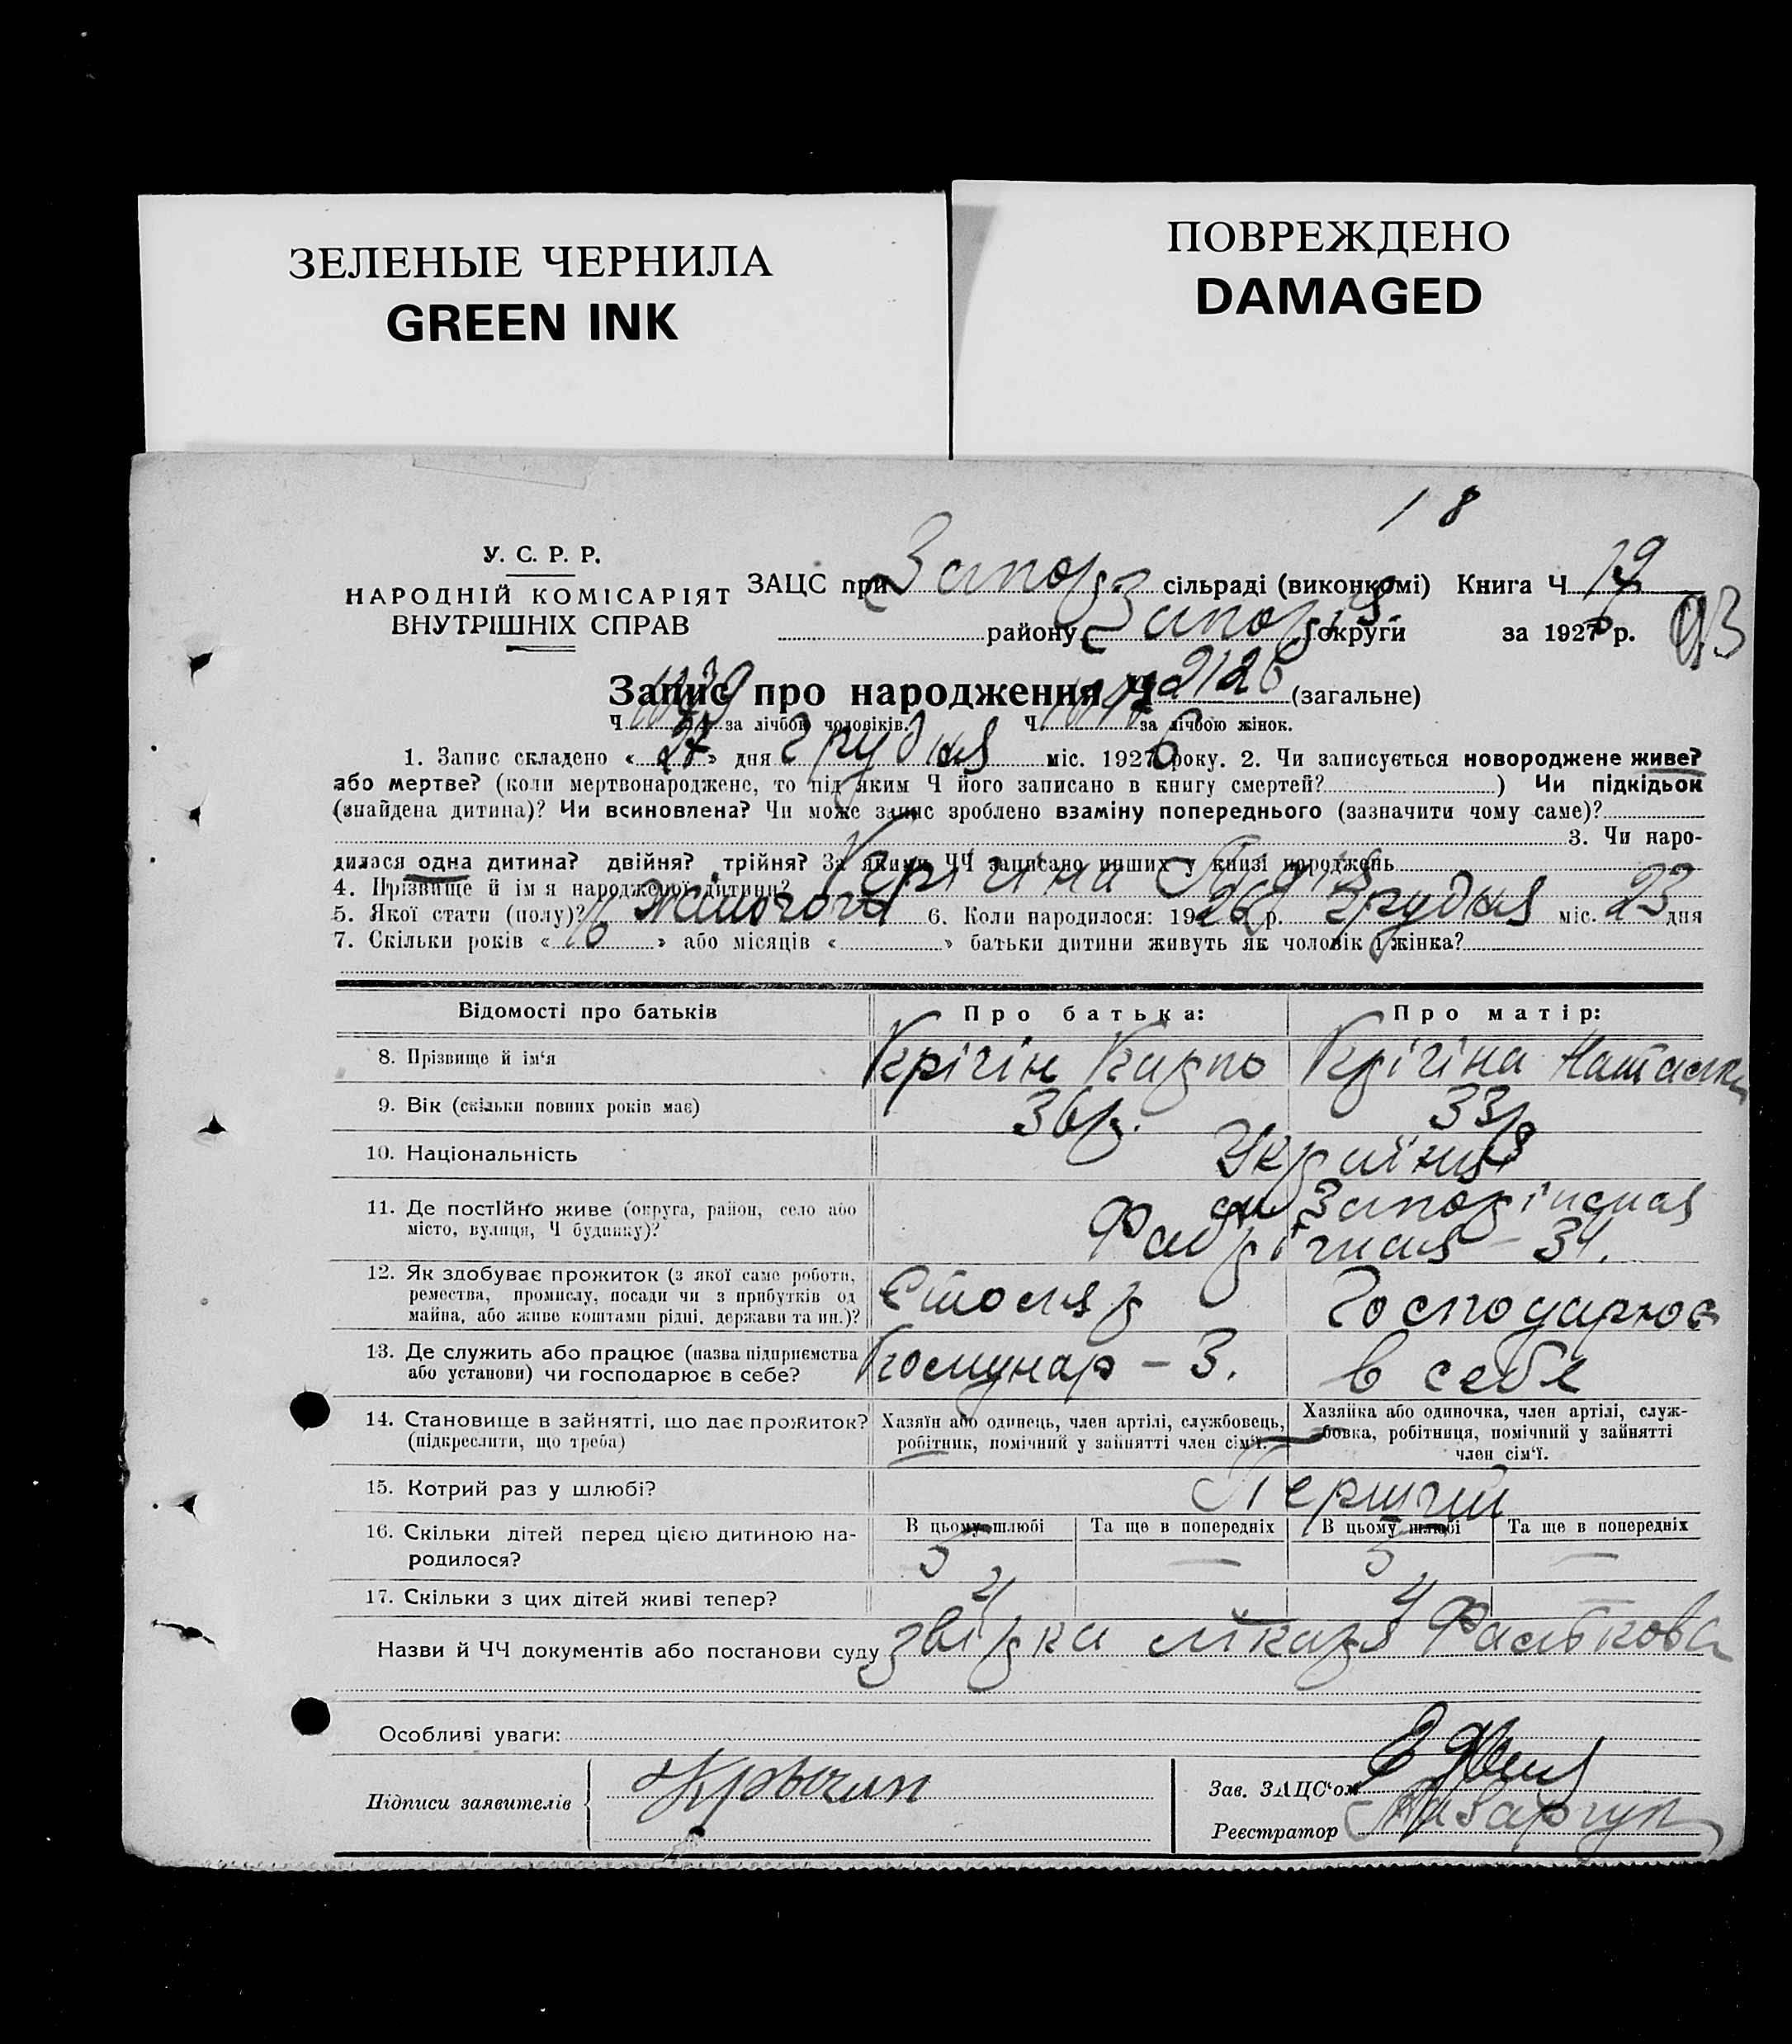 ЗЕЛЕНЫЕ ЧЕРНИЛА
GREEN INK
ПОВРЕЖДЕНО
DAMAGED
18
У. С. Р. Р.
НАРОДНІЙ КОМІСАРІЯТ
ВНУТРІШНІХ СПРАВ
ЗАЦС при Запоріз. сільраді (виконкомі) Книга Ч 19
району Запоріз. округи за 1926 р. 93
Запис про народження Ч 2126 (загальне)
Ч за лічбою чоловіків. Ч за лічбою жінок.
1. Запис складено « 27 » дня грудня міс. 1926 року. 2. Чи записується новороджене живе?
або мертве? (коли мертвонароджене, то під яким Ч його записано в книгу смертей? ) Чи підкідьок
(знайдена дитина)? Чи всиновлена? Чи може запис зроблено взаміну попереднього (зазначити чому саме)?
3. Чи наро-
дилася одна дитина? двійня? трійня? За якими ЧЧ записано инших у книзі народжень
4. Прізвище й ім'я народженої дитини? Крігіна
5. Якої стати (полу)? жіночої 6. Коли народилося: 1926 р. грудня міс. 23 дня
7. Скільки років « 16 » або місяців « » батьки дитини живуть як чоловік і жінка?
Відомості про батьків Про батька: Про матір:
8. Прізвище й ім'я Крігін Карпо Крігіна Наталка
9. Вік (скільки повних років має) 36 р. 33 р.
10. Національність Україн.
11. Де постійно живе (округа, район, село або
місто, вулиця, Ч будинку)? Запоріжжя
Фабрична – 34.
12. Як здобуває прожиток (з якої саме роботи,
ремества, промислу, посади чи з прибутків од
майна, або живе коштами рідні, держави та ин.)? Столяр Господарює
13. Де служить або працює (назва підприємства
або установи) чи господарює в себе? Комунар – З. в себе
14. Становище в зайнятті, що дає прожиток?
(підкреслити, що треба)
Хазяїн або одинець, член артілі, службовець,
робітник, помічний у зайнятті член сім'ї.
Хазяйка або одиночка, член артілі, служ-
бовка, робітниця, помічний у зайнятті
член сім'ї.
15. Котрий раз у шлюбі? Перший
16. Скільки дітей перед цією дитиною на-
родилося?
В цьому шлюбі Та ще в попередніх В цьому шлюбі Та ще в попередніх
5 — 5 —
17. Скільки з цих дітей живі тепер? 4 4 —
Назви й ЧЧ документів або постанови суду звірка лікаря
Особливі уваги:
Підписи заявителів
Зав. ЗАЦС'ом
Реєстратор